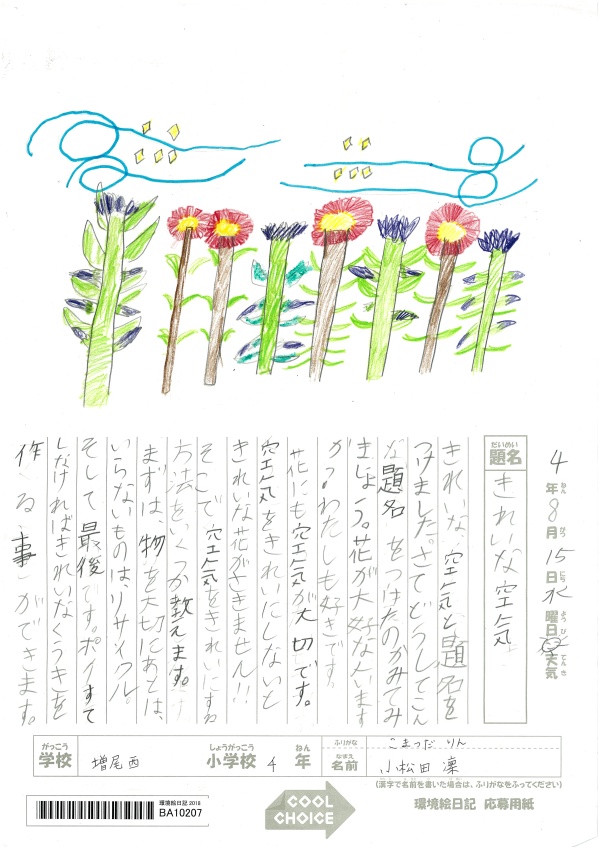 4年8月15日水曜日天気
ねん がつ にち ようび てんき
だいめい
題名
きれいな空気
きれいな空気と題名を
つけました。さてどうしてこん
な題名をつけたのかみてみ
ましょう。花が大好な人います
か?わたしも好きです。
花にも空気が大切です。
空気をきれいにしないと
きれいな花がさきません!!
そこで空気をきれいにする
方法をいくつか教えます。
まずは、物を大切にあとは、
いらないものは、リサイクル。
そして最後です。ポイすて
しなければきれいなくうきを
作る事ができます。
がっこう しょうがっこう ねん ふりがな こまつだ りん
学校 増尾西 小学校 4 年 なまえ 名前 小松田 凜
(漢字で名前を書いた場合は、ふりがなをふってください)
環境絵日記 2018
BA10207
COOL
CHOICE
環境絵日記 応募用紙